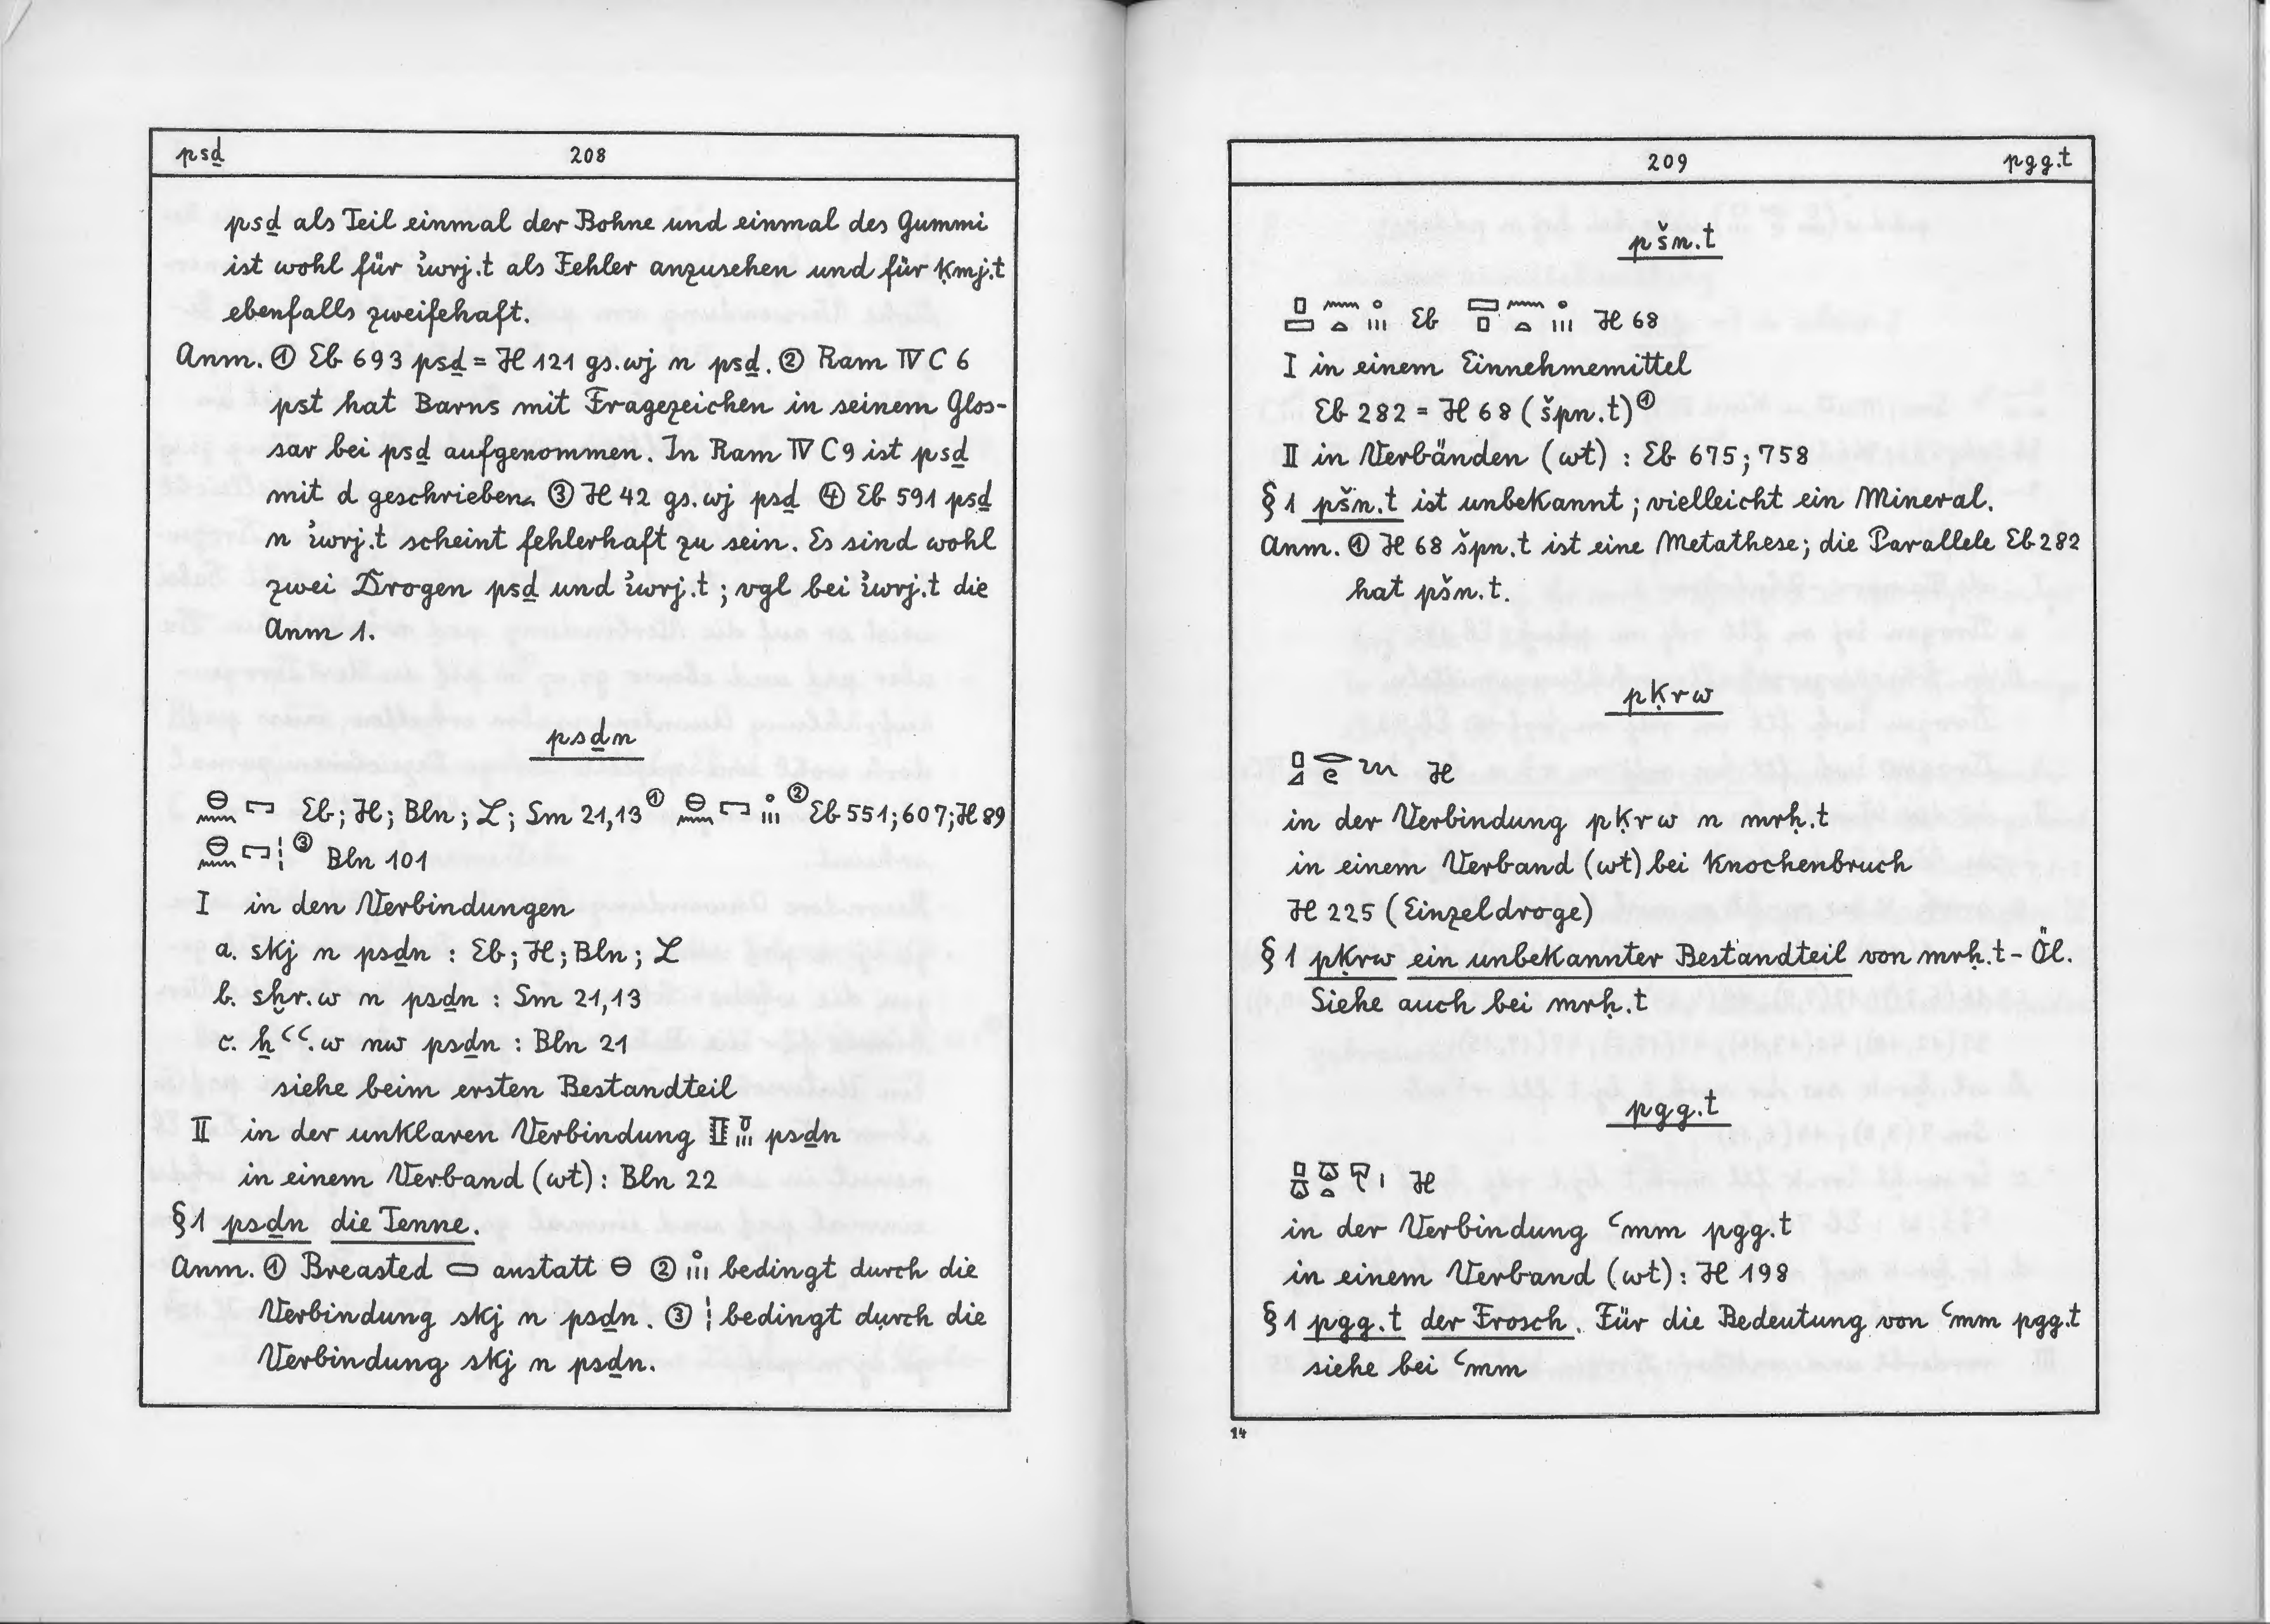 psḏ 208
psḏ als Teil einmal der Bohne und einmal des Gummi
ist wohl für ı͗wrj.t als Fehler anzusehen und für ḳmj.t
ebenfalls zweifehaft.
Anm. ① Eb 693 psḏ = H 121 gs.wj n psḏ. ② Ram IV C 6
pst hat Barns mit Fragezeichen in seinem Glos-
sar bei psḏ aufgenommen. In Ram IV C 9 ist psḏ
mit d geschrieben. ③ H 42 gs.wj psḏ ④ Eb 591 psḏ
n ı͗wrj.t scheint fehlerhaft zu sein. Es sind wohl
zwei Drogen psḏ und ı͗wrj.t; vgl bei ı͗wrj.t die
Anm 1.
psḏn
Eb; H; Bln; L; Sm 21,13 ① ② Eb 551; 607; H 89
③ Bln 101
I in den Verbindungen
a. skj n psḏn : Eb; H; Bln; L
b. sḫr.w n psḏn : Sm 21,13
c. ẖꜥꜥ.w nw psḏn : Bln 21
siehe beim ersten Bestandteil
II in der unklaren Verbindung psḏn
in einem Verband (wt) : Bln 22
§ 1 psḏn die Tenne.
Anm. ① Breasted anstatt ② bedingt durch die
Verbindung skj n psḏn. ③ bedingt durch die
Verbindung skj n psḏn.
209 pgg.t
pšn.t
Eb H 68
I in einem Einnehmemittel
Eb 282 = H 68 (špn.t) ①
II in Verbänden (wt) : Eb 675; 758
§ 1 pšn.t ist unbekannt; vielleicht ein Mineral.
Anm. ① H 68 špn.t ist eine Metathese; die Parallele Eb 282
hat pšn.t.
pḳrw
H
in der Verbindung pḳrw n mrḥ.t
in einem Verband (wt) bei Knochenbruch
H 225 (Einzeldroge)
§ 1 pḳrw ein unbekannter Bestandteil von mrḥ.t - Öl.
Siehe auch bei mrḥ.t
pgg.t
H
in der Verbindung ꜥmm pgg.t
in einem Verband (wt) : H 198
§ 1 pgg.t der Frosch. Für die Bedeutung von ꜥmm pgg.t
siehe bei ꜥmm
14